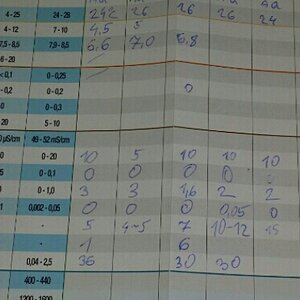 4 - 25 24 - 28 242 26 26 26 24
4 - 12 7 - 10 4,5 5
7,5 - 8,5 7,9 - 8,5 6,6 7,0 6,8
6 - 20
< 0,1 0 - 0,25
- 0,2 0 - 0,2 0
0 - 0,3
20 5 - 10
µS/cm 49 - 52 mS/cm
0 - 20 10 5 10 10 10
0 - 0,1 0 0 0 0 0
0 - 1,0 3 3 1,6 2 2
0,002 - 0,05 0 0 0 0,05 0
- 5 4-5 7 10-12 15
- 1 6
0,04 - 2,5 36 30 30
400 - 440
1200 - 1600